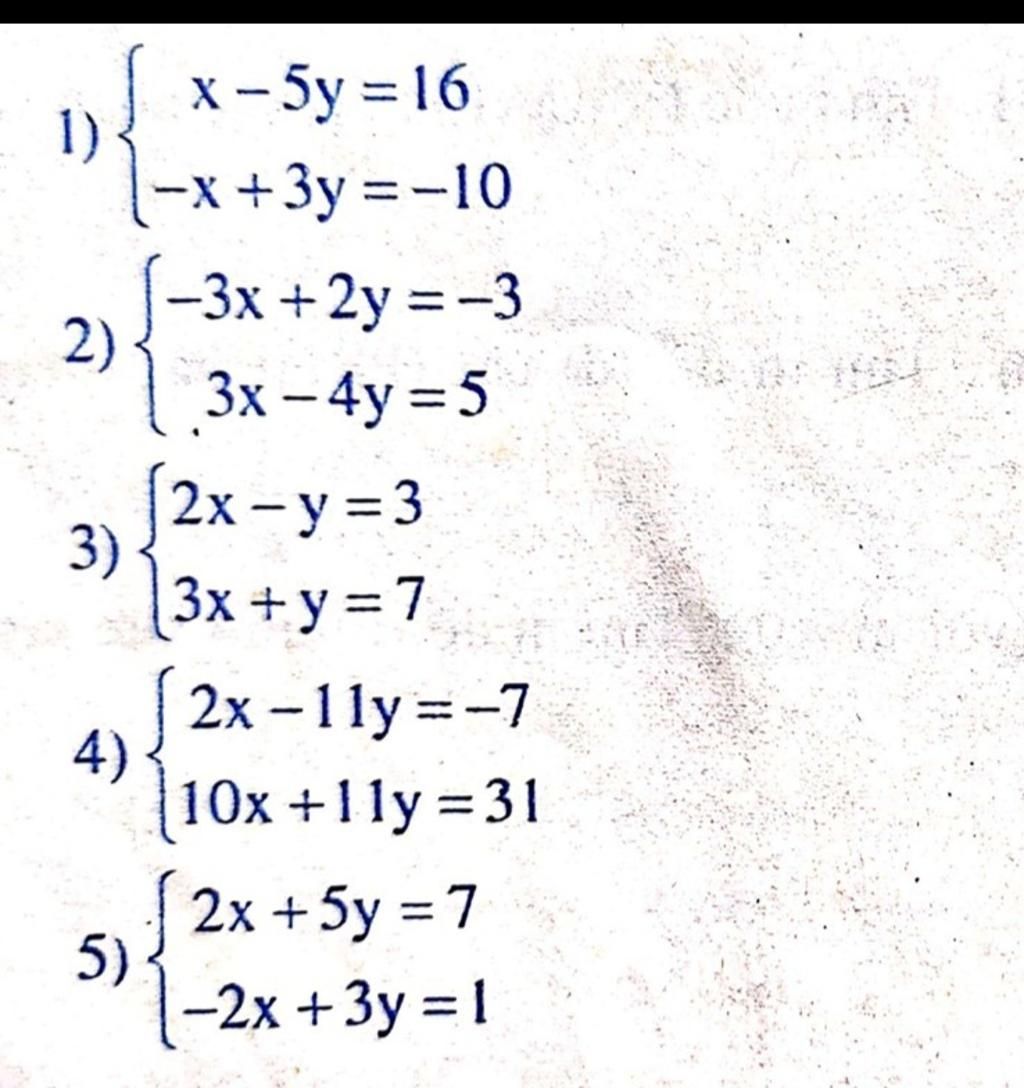 1) x – 5y = 16
–x + 3y = –10
2) –3x + 2y = –3
3x – 4y = 5
3) 2x – y = 3
3x + y = 7
4) 2x – 11y = –7
10x + 11y = 31
5) 2x + 5y = 7
–2x + 3y = 1